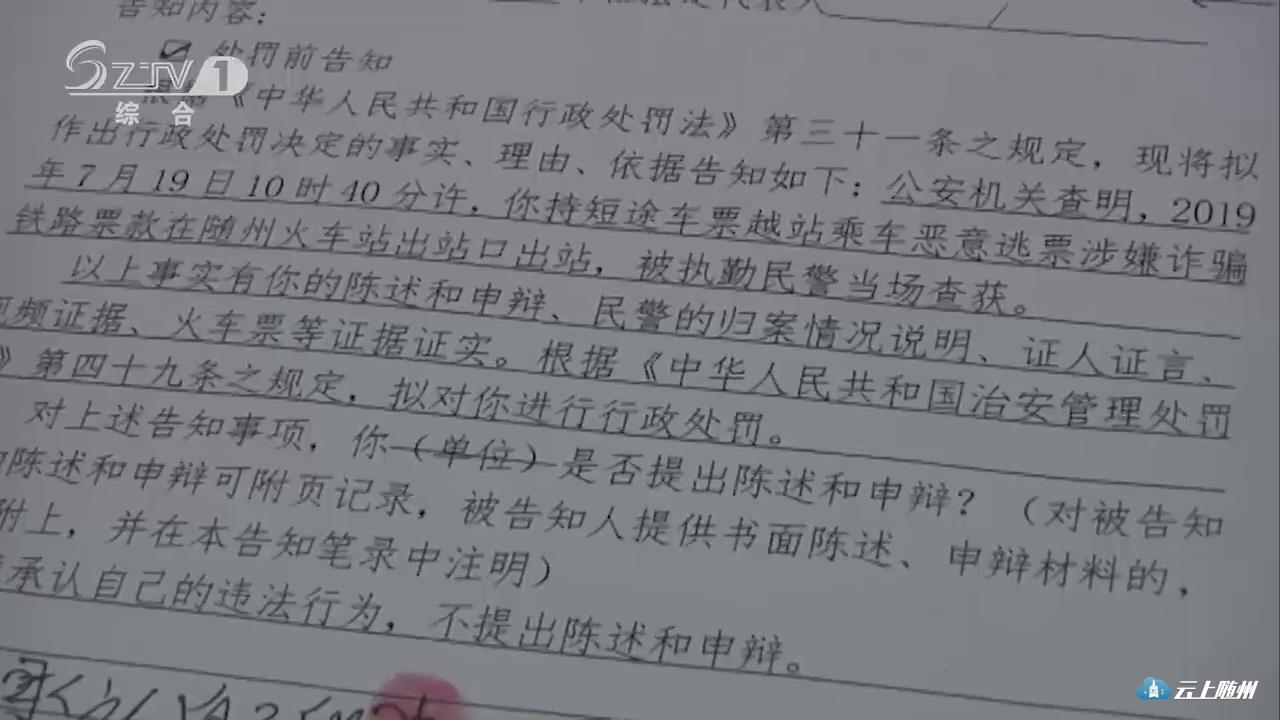 告知内容：
处罚前告知
SZTV 1
综合
《中华人民共和国行政处罚法》第三十一条之规定，现将拟
作出行政处罚决定的事实、理由、依据告知如下：公安机关查明，2019
年7月19日10时40分许，你持短途车票越站乘车恶意逃票涉嫌诈骗
铁路票款在随州火车站出站口出站，被执勤民警当场查获。
以上事实有你的陈述和申辩、民警的归案情况说明、证人证言、
频证据、火车票等证据证实。根据《中华人民共和国治安管理处罚
》第四十九条之规定，拟对你进行行政处罚。
对上述告知事项，你（单位）是否提出陈述和申辩？（对被告知
陈述和申辩可附页记录，被告知人提供书面陈述、申辩材料的，
附上，并在本告知笔录中注明）
承认自己的违法行为，不提出陈述和申辩。
云上随州